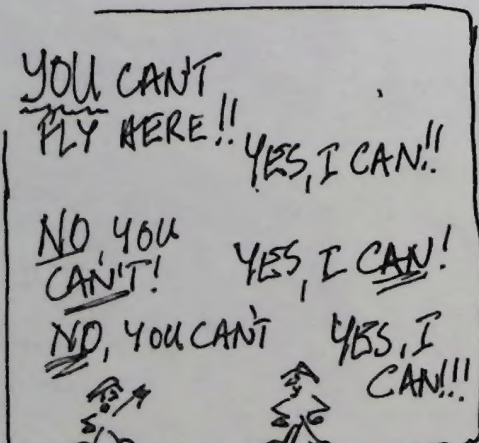 YOU CAN'T
FLY HERE!!
YES, I CAN!!
NO, YOU
CAN'T!
YES, I CAN!
NO, YOU CAN'T
YES, I
CAN!!!